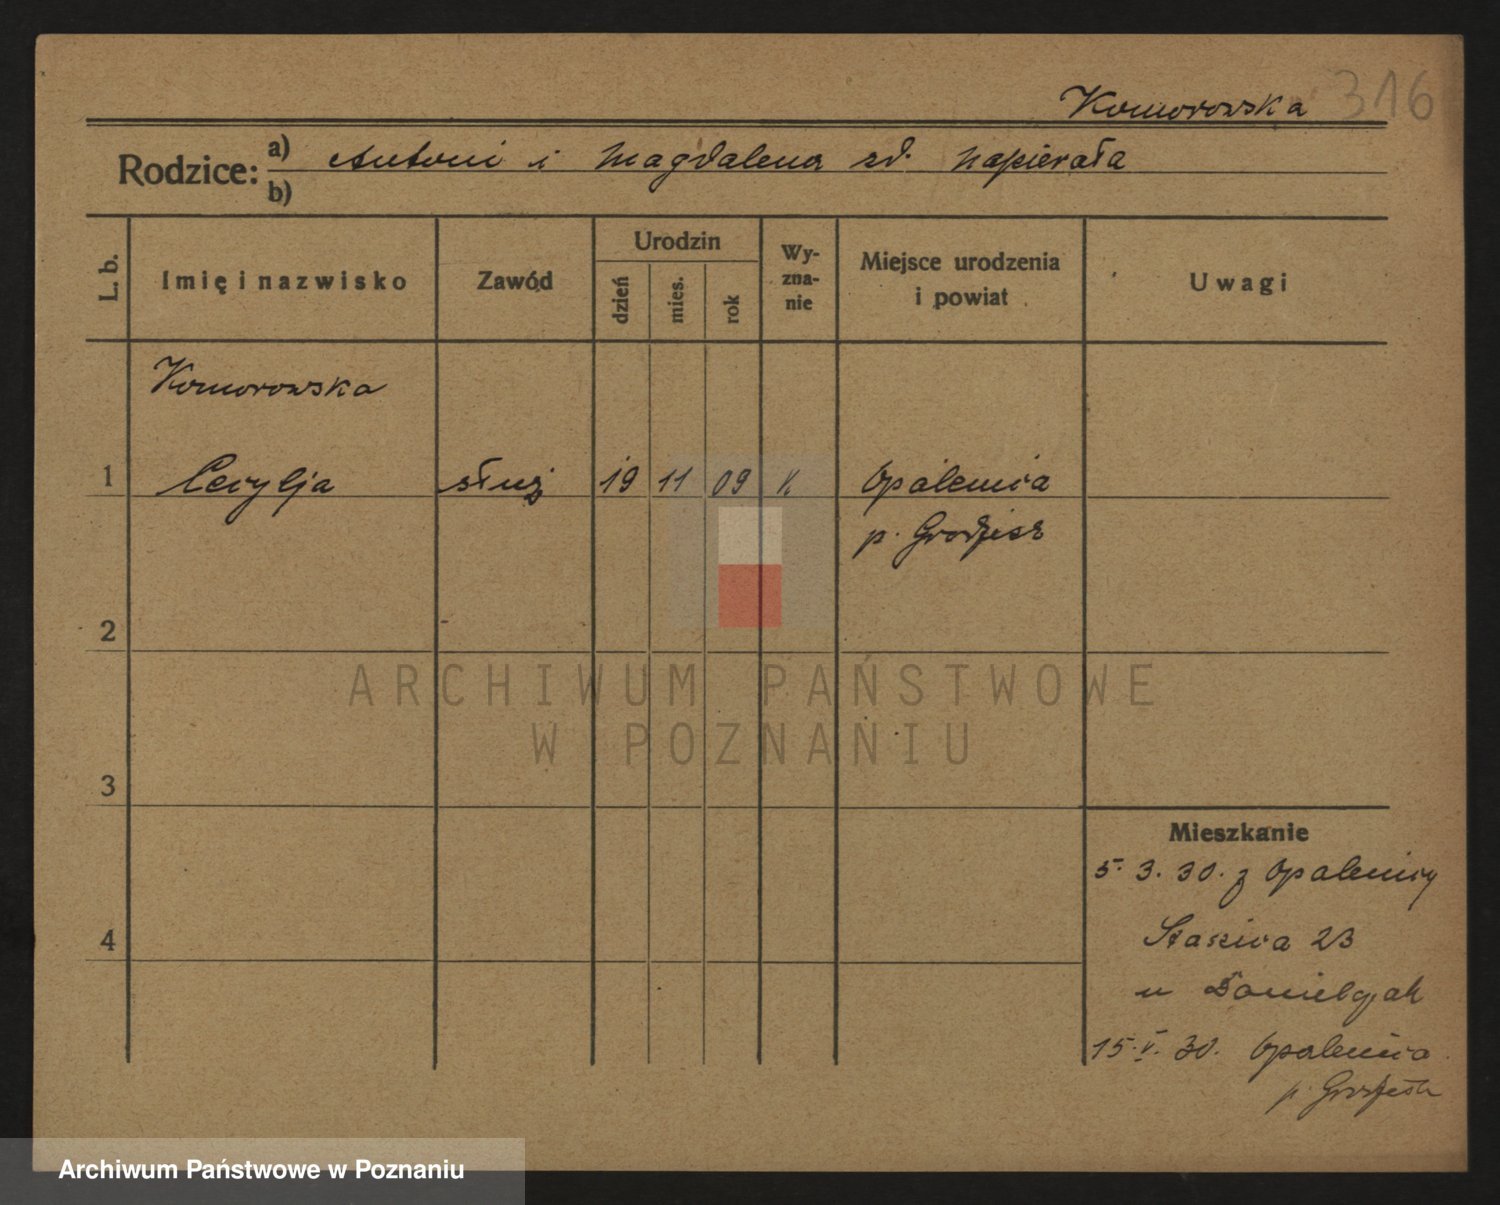 Komorowska 316
Rodzice: a) Antoni i Magdalena zd. Napierała
b)
L. b.
Imię i nazwisko
Zawód
Urodzin
dzień
mies.
rok
Wy-
zna-
nie
Miejsce urodzenia
i powiat
Uwagi
Komorowska
1 Cecylja służ 19 11 09 k Opalenica
p. Grodzisk
2
3
4
Mieszkanie
5. 3. 30. z Opalenicy
Staszica 23
u
15. V. 30. Opalenica
p. Grodzisk
ARCHIWUM PAŃSTWOWE
W POZNANIU
Archiwum Państwowe w Poznaniu